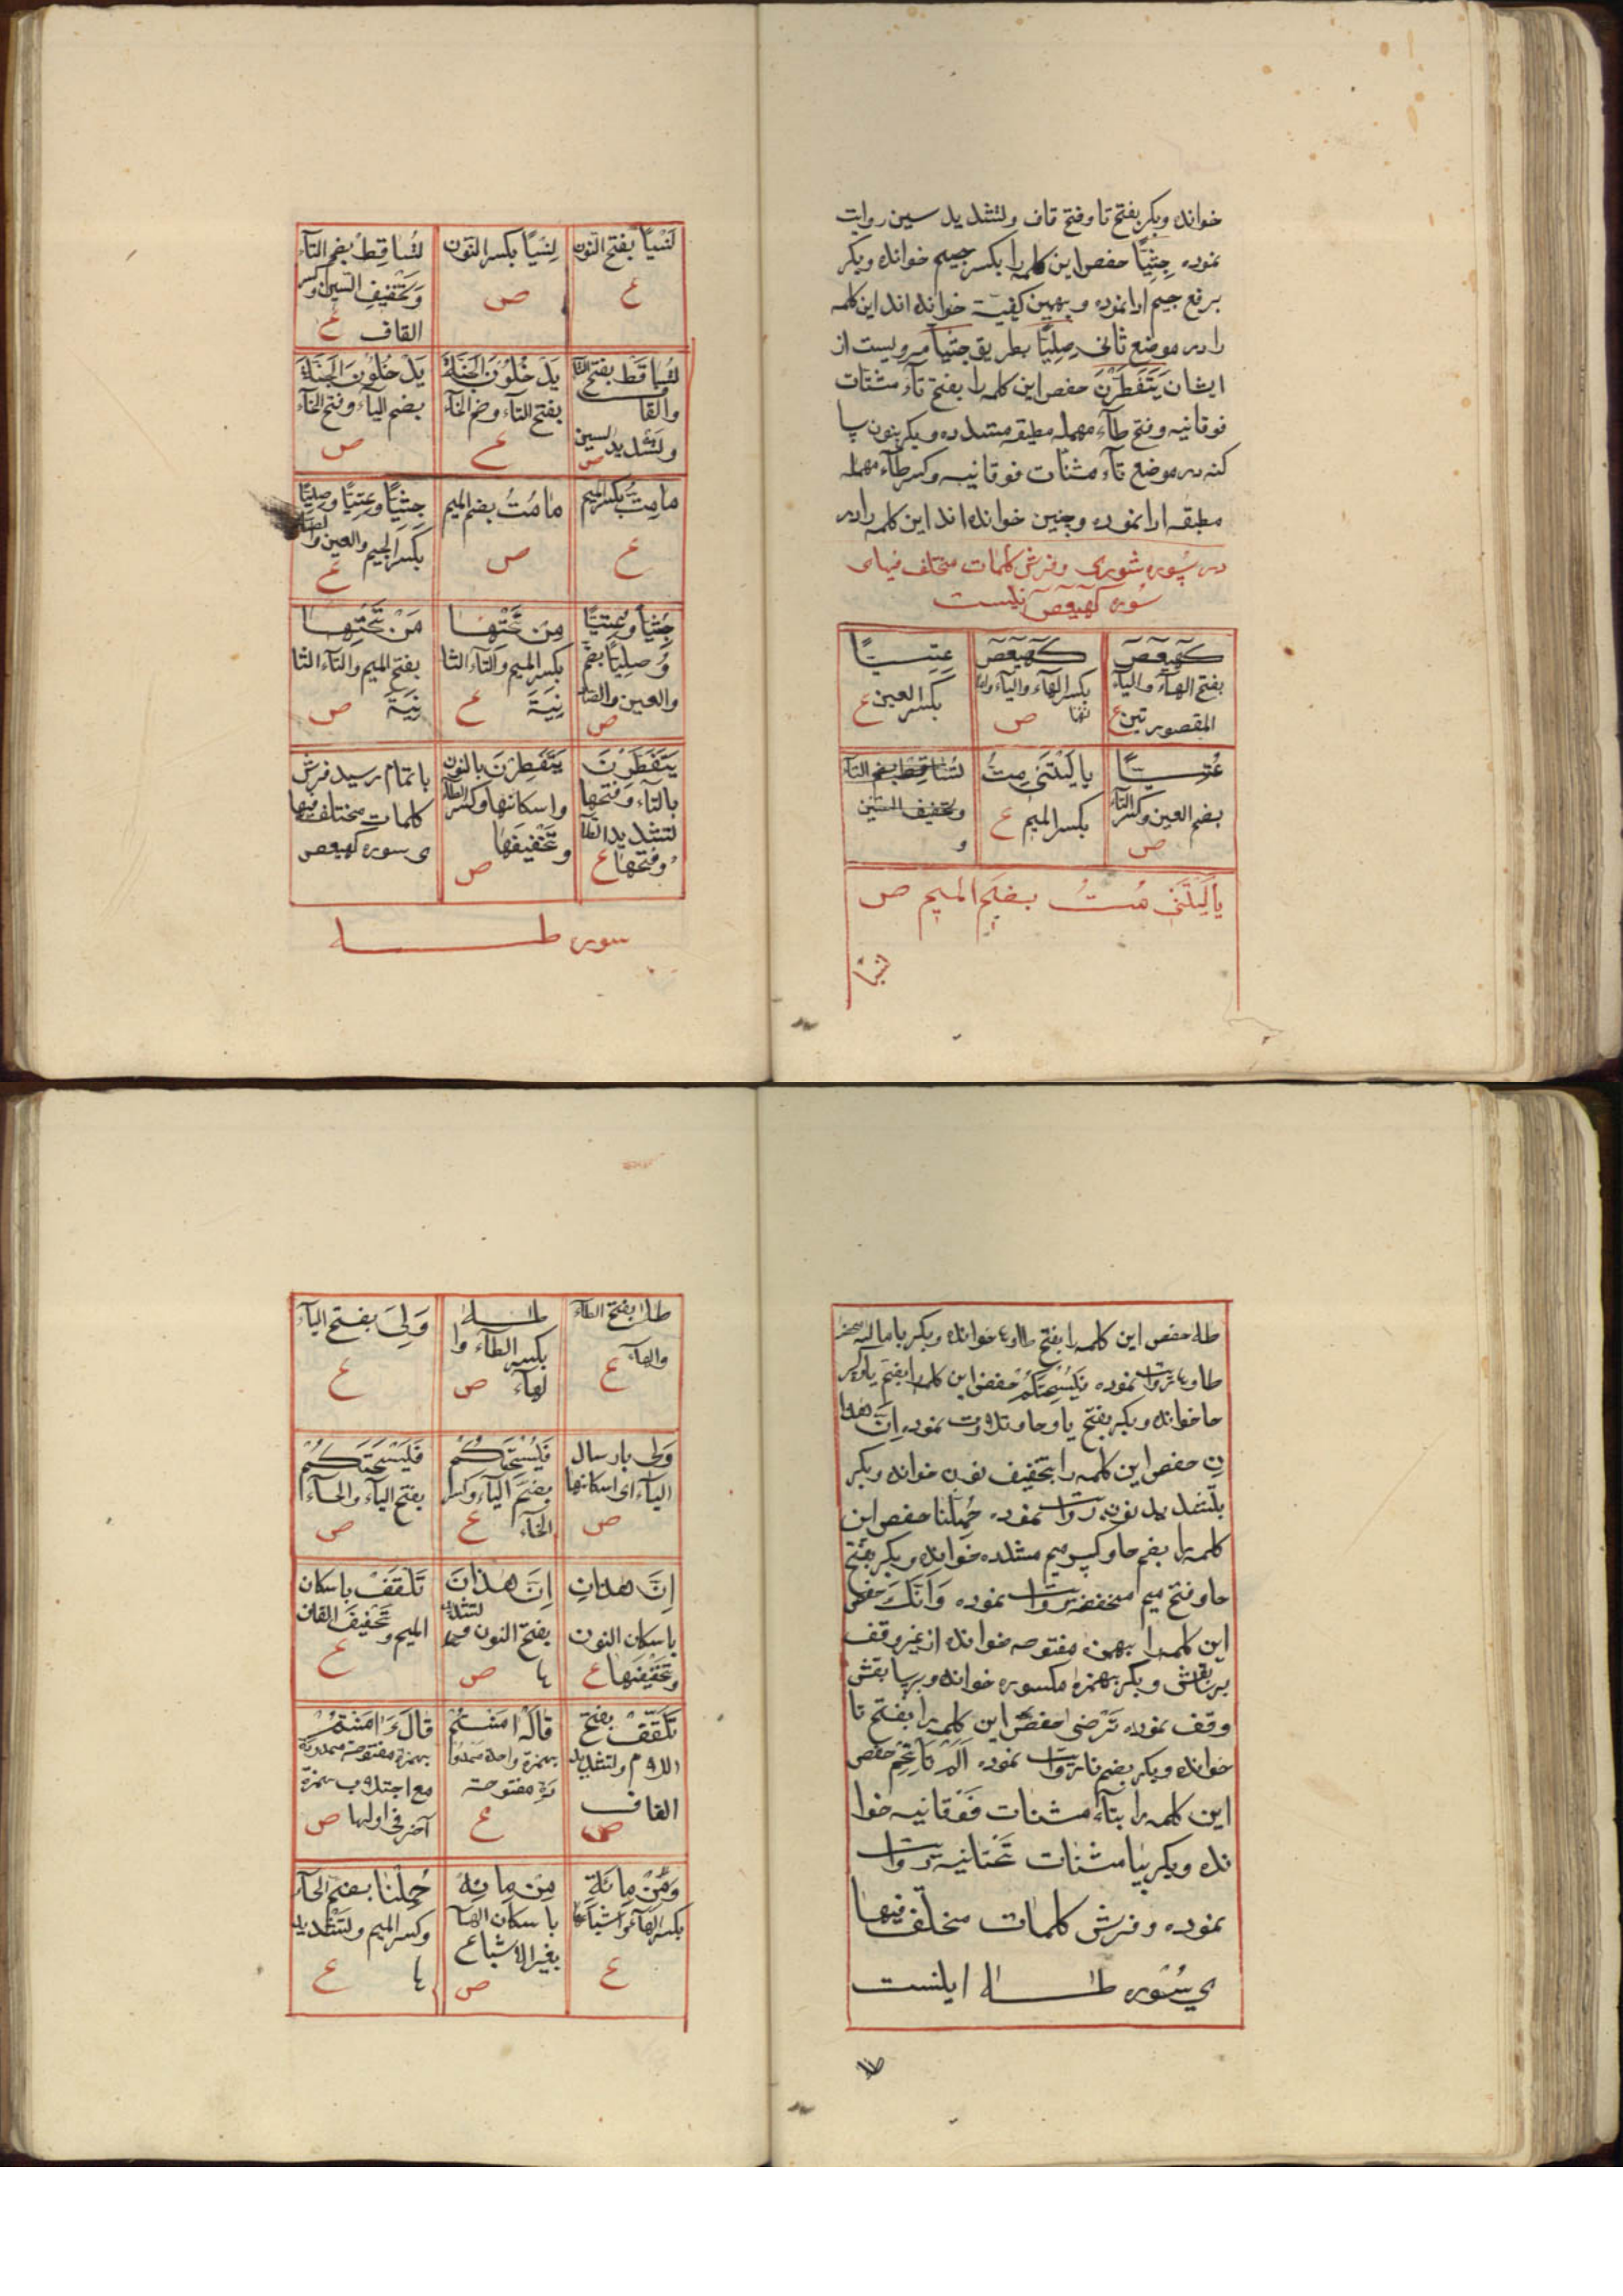 خوانده وبکر بفتح تا وفتح قاف ولتشدید سین روایت
نموده جِثِیًّا حفص این کلمه را بکسر جیم خوانده وبکر
برفع جیم ادا نموده وبهمین کیفیة خوانده اند این کلمه
را در موضع ثانی صِلِیًّا بطریق جثیا مرویست از
ایشان یَتَفَطَّرْنَ حفص این کلمه را بفتح تآء مثنات
فوقانیه وفتح طآء مهمله مطبقه مشدده وبکر بنون سا
کنه در موضع تآء مثنات فوقانیه وکسر طآء مهمله
مطبقه ادا نموده وچنین خوانده اند این کلمه را در
در سوره شوری وفرش کلمات مختلف فیهای
سوره کهیعص نیست
کهیعص
بفتح الهآء والیآء
المقصورتین ع
کهیعص
بکسر الهآء والیآء
ص
عِتِیًّا
بکسر العین ع
عُتِیًّا
بضم العین وکسر التآء
ص
یا لَیْتَنی مِتُّ
بکسر المیم ع
تُساقِط بضم التآء
وتخفیف السین
و
یا لَیْتَنی مُتُّ بضم المیم ص
نسیا
لَنْسیاً بفتح النون
ع
لِنْسیاً بکسر النون
ص
لتُساقِطْ بضم التآء
وَتخْفیفِ السین وکسر
القاف ع
لتساقَطْ بفتح التآ
والقاف
ولتشدید السین
ص
یَدْخُلُونَ الجَنَّةَ
بفتح الیآء وضم الخآء
ع
یُدْخَلُونَ الجَنَّةَ
بضم الیآء وفتح الخآء
ص
ما مِتُّ بکسر المیم
ع
ما مُتُّ بضم المیم
ص
جِثِیًّا وعِتِیًّا وصِلِیًّا
بکسر الجیم والعین والصاد
ع
جُثِیاً وعُتِیًّا
وَصُلِیًّا بضم
والعین والصاد
ص
مِنْ تَحْتِها
بکسر المیم والتآء الثا
نِیَةَ ع
مَنْ تَحْتَها
بفتح المیم والتآء الثا
نِیَةَ ص
یَتَفَطَّرْنَ
بالتآء وفتحها
لتشدید الطآ
وفتحها ع
یَنْفَطِرْنَ بالنون
واسکانها وکسر الطآء
وتَخْفیفَها
ص
باتمام رسید فرش
کلمات مختلف فیها
ی سوره کهیعص
سوره طه
طه حفص این کلمه را بفتح طا وها خوانده وبکر باماله محض
طا وها روایت نموده فَیُسْحِتَکُمْ حفص این کلمه را بضم یا وکسر
حا خوانده وبکر بفتح یا وحا وتلاوت نموده اِنْ هذا
نِ حفص این کلمه را بتخفیف نون خوانده وبکر
بلتشدید نون روایت نموده حُمِّلنا حفص این
کلمه را بضم حا وکسر میم مشدده خوانده وبکر بفتح
حا وفتح میم مخففه روایت نموده وَاَنَّکَ حفص
این کلمه را بهمزه مفتوحه خوانده از غیر وقف
برسابقش وبکر بهمزه مکسوره خوانده وبر سابقش
وقف نموده تَرْضی حفص این کلمه را بفتح تا
خوانده وبکر بضم تا روایت نموده اَلَمْ تَأْتِهِمْ حفص
این کلمه را بتآء مثنات فَوْقانیه خوا
نده وبکر بیا مثنات تَحْتانیه روایت
نموده وفرش کلمات مختلف فیها
ی سُوره طه اینست
طه
طه بفتح الطآء
والهآء ع
طه
بکسر الطآء وا
لهآء ص
وَلِیَ بفتح الیآء
ع
وَلی بارسال
الیآء ای اسکانها
ص
فَیُسْحِتَکُمْ
بضم الیآء وکسر
الحآء ع
فَیَسْحَتَکُمْ
بفتح الیآء والحآء
ص
اِنْ هذانِ
باسکان النون
وتخفیفها ع
اِنَّ هذانَ
بفتح النون ولتشدید
ها ص
تَلْقَفْ باسکان
المیم وتَخْفیفَ القاف
ع
تَلَقَّفْ بفتح
اللام ولتشدید
القاف
ص
قالَ اٰمَنْتُمْ
بهمزة واحدة ممدو
دة مفتوحة
ع
قالَ ءَاٰمَنْتُمْ
بهمزة مفتوحة ممدودة
مع اجتلاب همزة
آخر فی اولها ص
وَمَنْ یأتِهِ
بکسر الهآء واشباعها
ع
مَنْ یأتِهْ
باسکان الهآ
بغیر الاشباع
ص
حُمِّلْنا بضم الحآء
وکسر المیم ولتشدید
ها ع